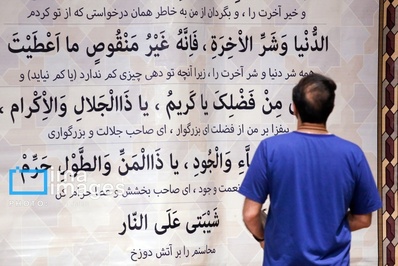 و خیر آخرت را ، و بگردان از من به خاطر همان درخواستی که از تو کردم
الدُّنْیا وَشَرِّ الْاخِرَةِ ، فَاِنَّهُ غَیْرُ مَنْقُوصٍ ما اَعْطَیْتَ
همه شر دنیا و شر آخرت را ، زیرا آنچه تو دهی چیزی کم ندارد (یا کم نیاید) و
مِنْ فَضْلِکَ یا کَریمُ ، یا ذَاالْجَلالِ وَالْاِکْرامِ ،
بیفزا بر من از فضلت ای بزرگوار ، ای صاحب جلالت و بزرگواری
وَالْجُودِ ، یا ذَاالْمَنِّ وَالطَّوْلِ حَرِّمْ
نعمت وجود ، ای صاحب بخشش و عطا حرام کن
شَیْبَتی عَلَی النّار
محاسنم را بر آتش دوزخ
iina images